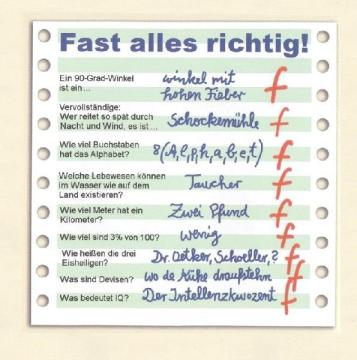 Fast alles richtig!
Ein 90-Grad-Winkel
ist ein...
winkel mit
hohen Fieber
f
Vervollständige:
Wer reitet so spät durch
Nacht und Wind, es ist...
Schockemühle
f
Wie viel Buchstaben
hat das Alphabet?
8 (A, l, p, h, a, b, e, t)
f
Welche Lebewesen können
im Wasser wie auf dem
Land existieren?
Taucher
f
Wie viel Meter hat ein
Kilometer?
Zwei Pfund
f
Wie viel sind 3% von 100?
wenig
f
Wie heißen die drei
Eisheiligen?
Dr. Oetker, Schoeller, ?
f
Was sind Devisen?
wo de Kühe draufstehn
f
Was bedeutet IQ?
Der Intellenzkwozent
f